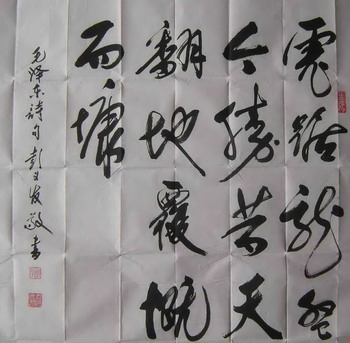 虎踞龍盤
今勝昔天
翻地覆慨
而慷
毛泽东詩句 彭发敬書